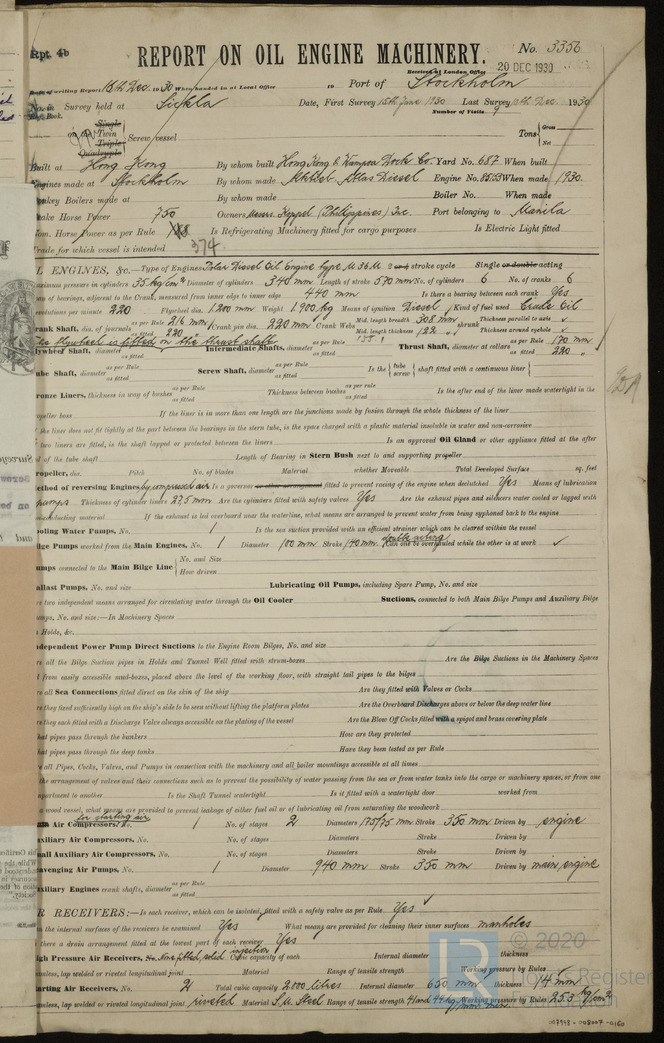 Rpt. 4b
REPORT ON OIL ENGINE MACHINERY.
No. 3356
20 DEC 1930
Received at London Office
Date of writing Report 16th Dec. 1930 When handed in at Local Office 19 Port of Stockholm
No. in Survey held at Sickla Date, First Survey 15th June 1930 Last Survey Dec. 1930
Reg. Book. Number of Visits 9
on the Single Twin Triple Quadruple Screw vessel Tons Gross Net
Built at Hong Kong By whom built Hong Kong & Dock Co. Yard No. 687 When built
Engines made at Stockholm By whom made Atlas Diesel Engine No. When made 1930
Donkey Boilers made at By whom made Boiler No. When made
Brake Horse Power 750 Owners Messrs. Keppel (Philippines) Inc. Port belonging to Manila
Nom. Horse Power as per Rule Is Refrigerating Machinery fitted for cargo purposes Is Electric Light fitted
Trade for which vessel is intended 374.
OIL ENGINES, &c.—Type of Engines Polar Diesel Oil Engine type M 36 M 2 or 4 stroke cycle Single or double acting
Maximum pressure in cylinders 35 kg/cm² Diameter of cylinders 340 mm Length of stroke 570 mm No. of cylinders 6 No. of cranks 6
Span of bearings, adjacent to the Crank, measured from inner edge to inner edge 440 mm Is there a bearing between each crank Yes
Revolutions per minute 220 Flywheel dia. 1200 mm Weight 1.900 kg Means of ignition Diesel Kind of fuel used Crude Oil
Crank Shaft, dia. of journals as per Rule 216 mm as fitted 220 Crank pin dia. 220 mm Crank Webs Mid. length breadth 308 mm Mid. length thickness 122 shrunk Thickness parallel to axis Thickness around eyehole
The flywheel is fitted on the thrust shaft
Flywheel Shaft, diameter as fitted Intermediate Shafts, diameter as per Rule as fitted Thrust Shaft, diameter at collars as per Rule 190 mm as fitted 220
Tube Shaft, diameter as fitted Screw Shaft, diameter as per Rule as fitted Is the tube screw shaft fitted with a continuous liner
Bronze Liners, thickness in way of bushes as per Rule as fitted Thickness between bushes as per rule as fitted Is the after end of the liner made watertight in the
propeller boss If the liner is in more than one length are the junctions made by fusion through the whole thickness of the liner
If the liner does not fit tightly at the part between the bearings in the stern tube, is the space charged with a plastic material insoluble in water and non-corrosive
If two liners are fitted, is the shaft lapped or protected between the liners Is an approved Oil Gland or other appliance fitted at the after
end of the tube shaft Length of Bearing in Stern Bush next to and supporting propeller
Propeller, dia. Pitch No. of blades Material whether Moveable Total Developed Surface sq. feet
Method of reversing Engines by compressed air Is a governor or other arrangement fitted to prevent racing of the engine when declutched Yes Means of lubrication
pumps Thickness of cylinder liners 27.5 mm Are the cylinders fitted with safety valves Yes Are the exhaust pipes and silencers water cooled or lagged with
non-conducting material If the exhaust is led overboard near the waterline, what means are arranged to prevent water from being syphoned back to the engine
Cooling Water Pumps, No. 1 Is the sea suction provided with an efficient strainer which can be cleared within the vessel
Bilge Pumps worked from the Main Engines, No. 1 Diameter 100 mm Stroke 140 mm double acting Can one be overhauled while the other is at work
Pumps connected to the Main Bilge Line No. and Size How driven
Ballast Pumps, No. and size Lubricating Oil Pumps, including Spare Pump, No. and size
Are two independent means arranged for circulating water through the Oil Cooler Suctions, connected to both Main Bilge Pumps and Auxiliary Bilge
Pumps, No. and size:—In Machinery Spaces
In Holds, &c.
Independent Power Pump Direct Suctions to the Engine Room Bilges, No. and size
Are all the Bilge Suction pipes in Holds and Tunnel Well fitted with strum-boxes Are the Bilge Suctions in the Machinery Spaces
led from easily accessible mud-boxes, placed above the level of the working floor, with straight tail pipes to the bilges
Are all Sea Connections fitted direct on the skin of the ship Are they fitted with Valves or Cocks
Are they fixed sufficiently high on the ship's side to be seen without lifting the platform plates Are the Overboard Discharges above or below the deep water line
Are they each fitted with a Discharge Valve always accessible on the plating of the vessel Are the Blow Off Cocks fitted with a spigot and brass covering plate
What pipes pass through the bunkers How are they protected
What pipes pass through the deep tanks Have they been tested as per Rule
Are all Pipes, Cocks, Valves, and Pumps in connection with the machinery and all boiler mountings accessible at all times
Is the arrangement of valves and their connections such as to prevent the possibility of water passing from the sea or from water tanks into the cargo or machinery spaces, or from one
compartment to another Is the Shaft Tunnel watertight Is it fitted with a watertight door worked from
If a wood vessel, what means are provided to prevent leakage of either fuel oil or of lubricating oil from saturating the woodwork
for starting air
Main Air Compressors, No. 1 No. of stages 2 Diameters 175/75 mm Stroke 350 mm Driven by engine
Auxiliary Air Compressors, No. No. of stages Diameters Stroke Driven by
Small Auxiliary Air Compressors, No. No. of stages Diameters Stroke Driven by
Scavenging Air Pumps, No. 1 Diameter 940 mm Stroke 350 mm Driven by main engine
Auxiliary Engines crank shafts, diameter as per Rule as fitted
AIR RECEIVERS:—Is each receiver, which can be isolated, fitted with a safety valve as per Rule Yes
Can the internal surfaces of the receivers be examined Yes What means are provided for cleaning their inner surfaces manholes
Is there a drain arrangement fitted at the lowest part of each receiver Yes
High Pressure Air Receivers, No. None fitted, solid injection Cubic capacity of each Internal diameter thickness
Seamless, lap welded or riveted longitudinal joint Material Range of tensile strength Working pressure by Rules
Starting Air Receivers, No. 2 Total cubic capacity 2.000 litres Internal diameter 650 mm thickness 14 mm
Seamless, lap welded or riveted longitudinal joint riveted Material S.M. Steel Range of tensile strength 41 and 44 kg/mm Working pressure by Rules 25.3 kg/cm²
© 2020
Lloyd's Register
Foundation
007998-008007-0160